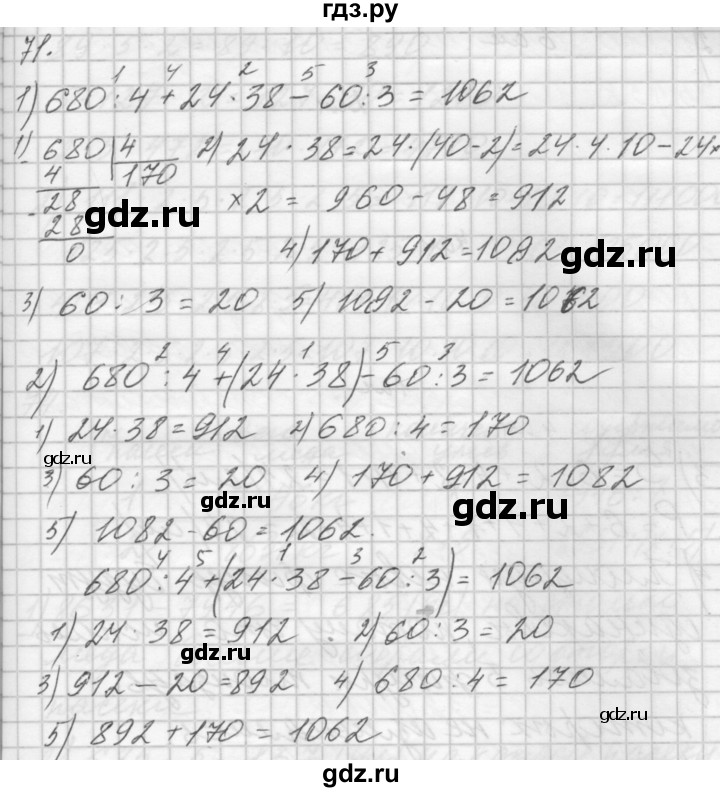 гдз.ру
71.
1 4 2 5 3
1) 680 : 4 + 24 · 38 − 60 : 3 = 1062
1) 680 | 4 2) 24 · 38 = 24 · (40-2) = 24 · 4 · 10 − 24 ×
4 170
28 × 2 = 960 − 48 = 912
28 gdz.ru
0 4) 170 + 912 = 1092 gdz.ru
3) 60 : 3 = 20 5) 1092 - 20 = 1062
2 4 1 5 3
2) 680 : 4 + (24 · 38) − 60 : 3 = 1062
1) 24 · 38 = 912 2) 680 : 4 = 170
gdz.ru
3) 60 : 3 = 20 4) 170 + 912 = 1082
gdz.ru gdz.ru
5) 1082 - 60 = 1062.
4 5 1 3 2
680 : 4 + (24 · 38 − 60 : 3) = 1062
1) 24 · 38 = 912 2) 60 : 3 = 20
gdz.ru
3) 912 − 20 = 892 4) 680 : 4 = 170
gdz.ru
5) 892 + 170 = 1062
gdz.ru